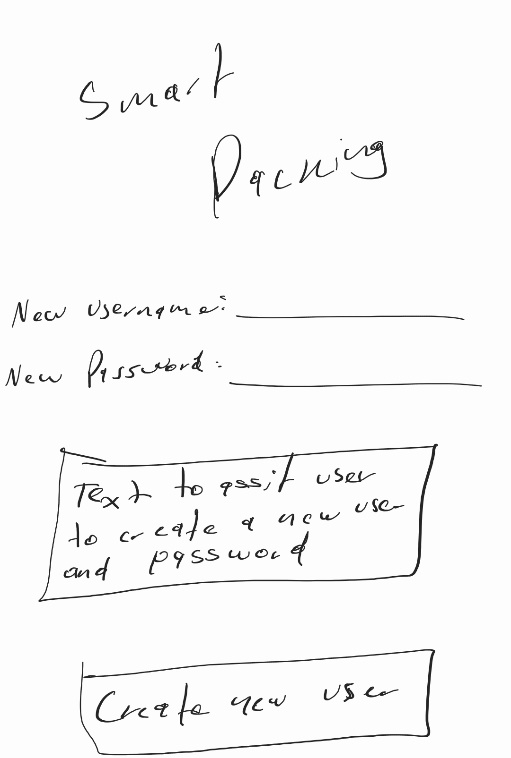 Smart
Packing
New username:
New Password:
Text to assit user
to create a new user
and password
Create new user